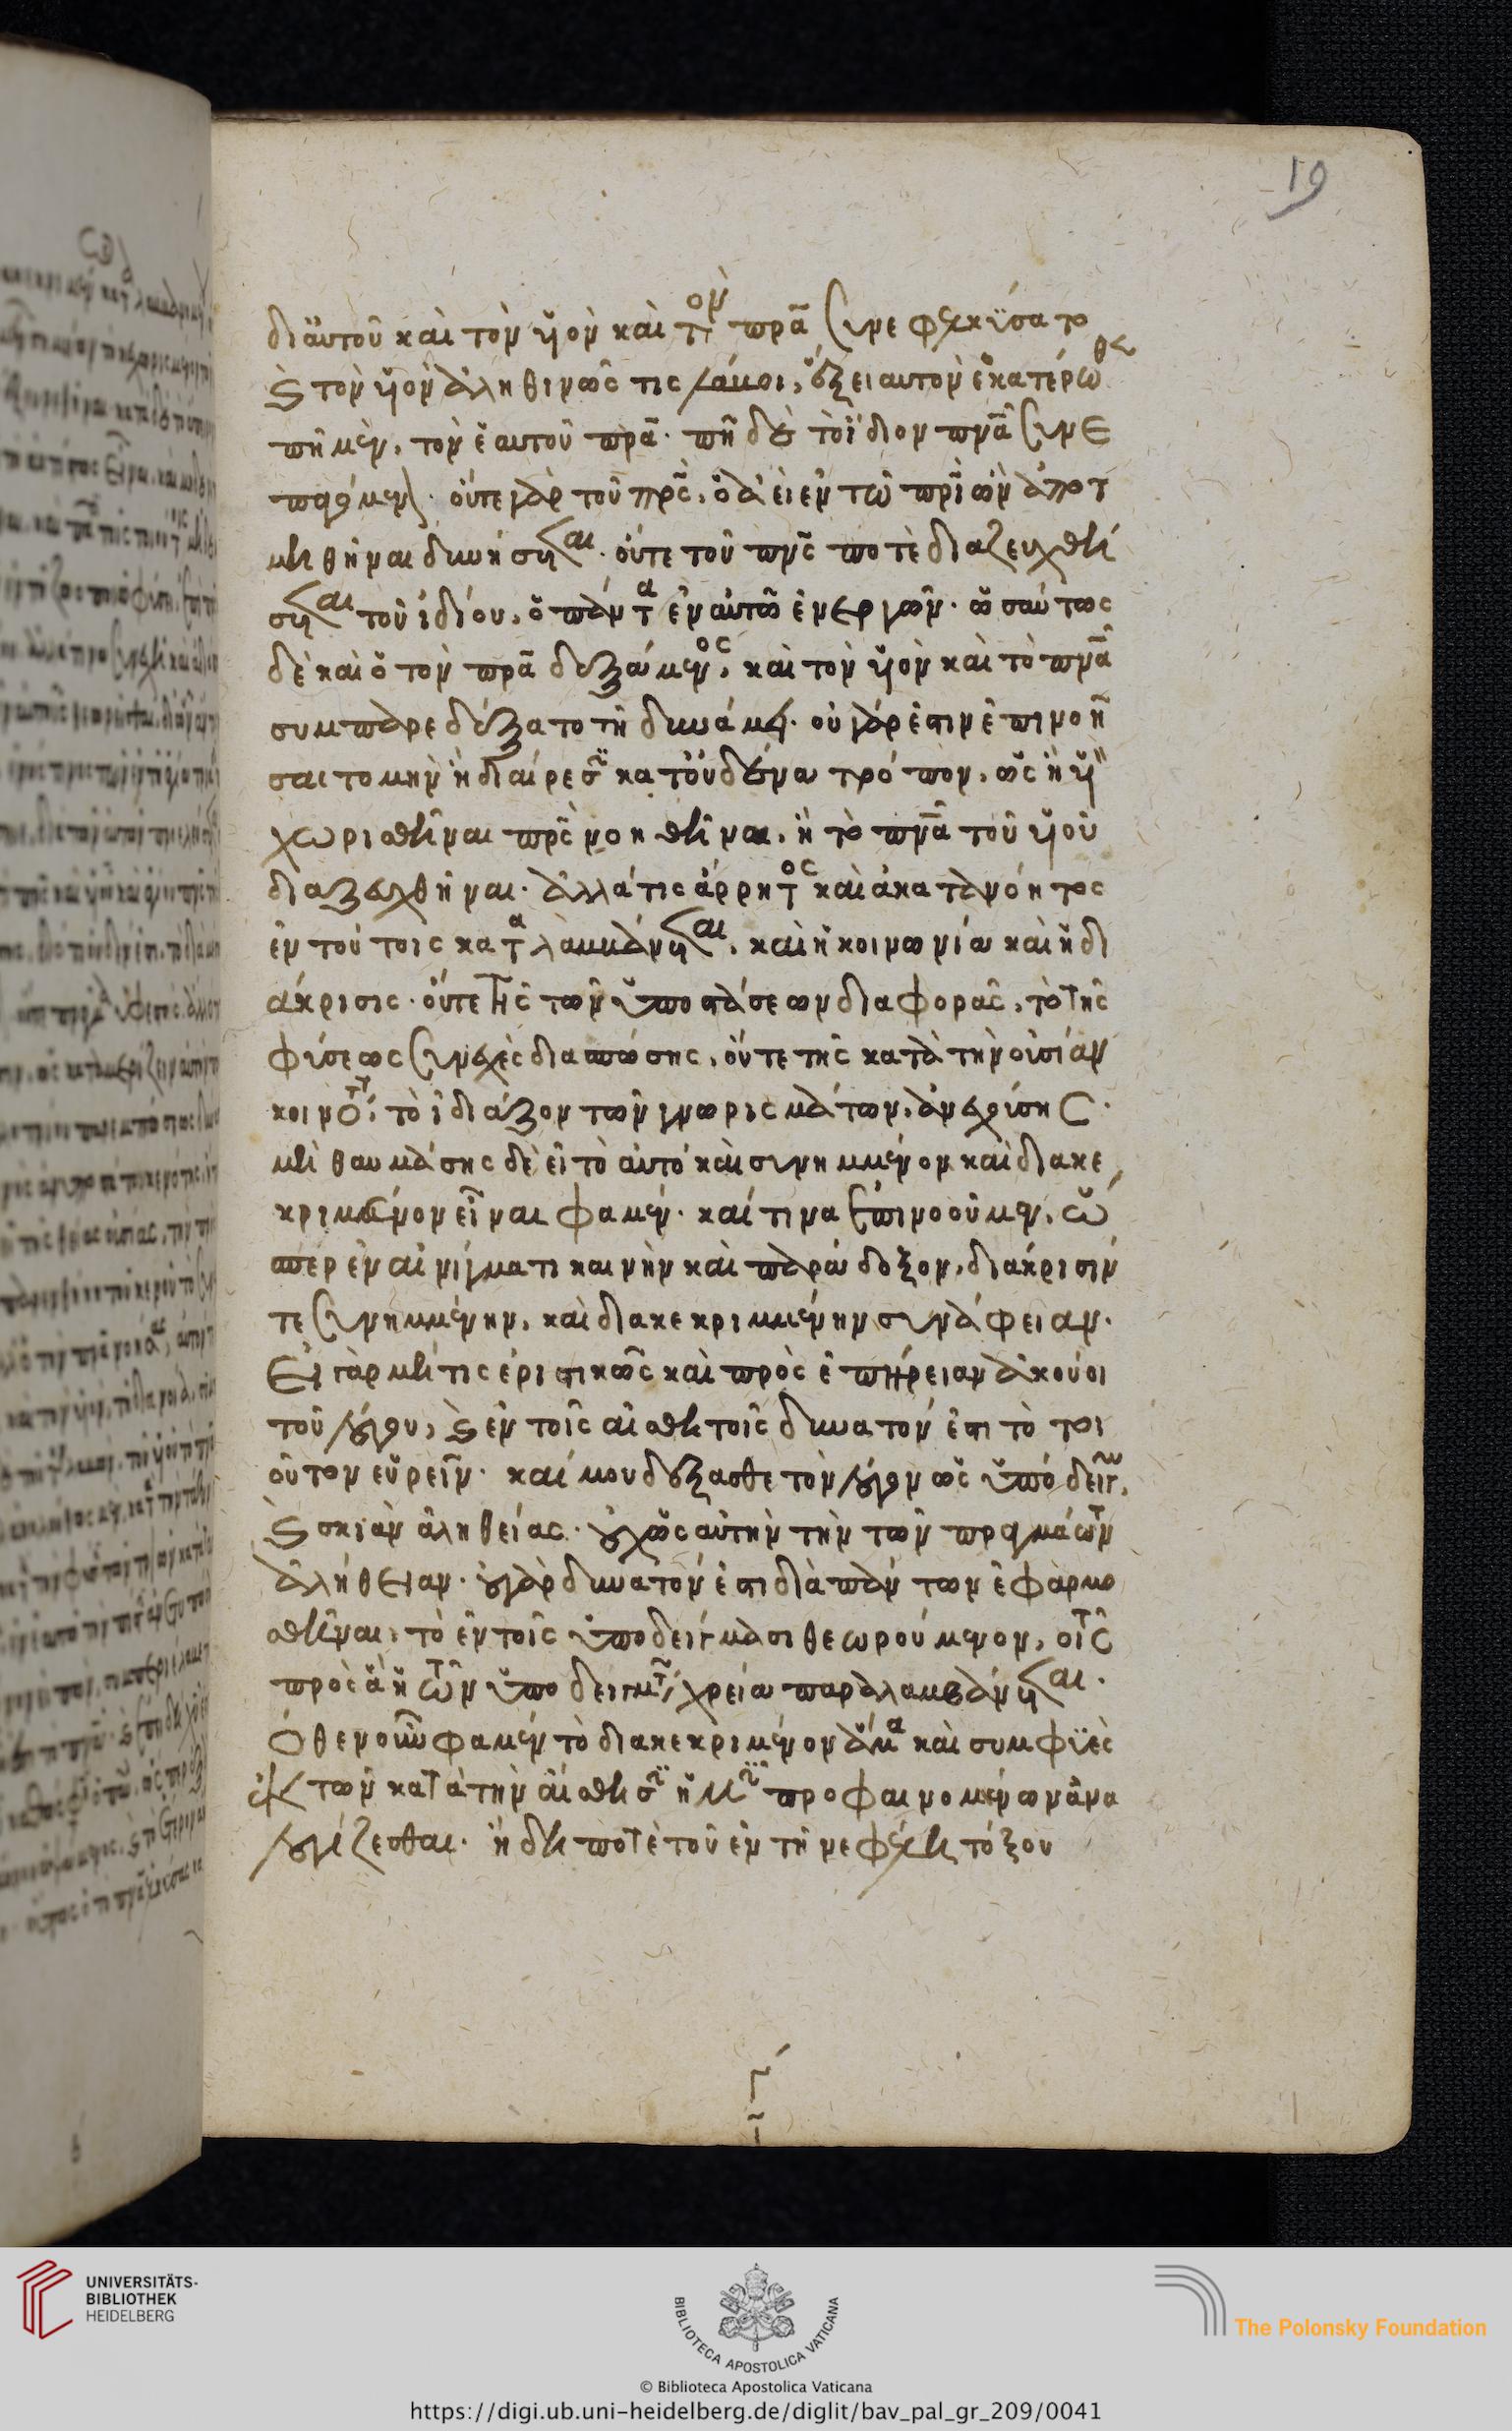 δι αὐτοῦ καὶ τὸν υἱὸν καὶ τὸν πρα συνεφειλκύσατο
κἂν τὸν υἱὸν ἀληθινῶς τις λάβοι, ἕξει αυτὸν ἑκατέρωθεν
πῆ μὲν, τὸν ἑαυτοῦ πρα· πῆ δὲ τὸ ἴδιον πνα συνε
παγόμενον· οὔτε γὰρ τοῦ πρς, ὁ ἀεὶ ἐν τῶ πρι ὢν ἀποτ
μηθῆναι δυνήσεται· οὔτε τοῦ πνς ποτὲ διαζευχθή
σεται τοῦ ἰδίου, ὁ πάντα ἐν αὐτῶ ἐνεργῶν· ὡσαύτως
δὲ καὶ ὁ τὸν πρα δεξάμενος, καὶ τὸν υἱὸν καὶ τὸ πνα
συμπαρεδέξατο τῆ δυνάμει· οὐ γάρ ἐστιν ἐπινοῆ
σαι τομὴν ἢ διαίρεσιν κατ οὐδένα τρόπον, ὡς ἢ υἱν
χωρισθῆναι πρς νοηθῆναι, ἢ τὸ πνα τοῦ υἱοῦ
διαζευχθῆναι· ἀλλά τις ἄρρητος καὶ ἀκατανόητος
ἐν τούτοις καταλαμβάνεται, καὶ ἡ κοινωνία καὶ ἡ δι
άκρισις· οὔτε τῆς τῶν ὑποστάσεων διαφορᾶς, τὸ τῆς
φύσεως συνεχὲς διασπώσης, οὔτε τῆς κατὰ τὴν οὐσίαν
κοινότητος, τὸ ἰδιάζον τῶν γνωρισμάτων, ἀναχεούσης·
μὴ θαυμάσης δὲ εἰ τὸ αὐτό καὶ συνημμένον καὶ διακε
κριμμένον εἶναι φαμέν· καί τινα ἐπινοοῦμεν, ὥ
σπερ ἐν αἰνίγματι καινὴν καὶ παράδοξον, διάκρισίν
τε συνημμένην, καὶ διακεκριμμένην συνάφειαν·
Εἰ γὰρ μή τις ἐριστικῶς καὶ πρὸς ἐπήρειαν ἀκούοι
τοῦ λόγου, κἂν ἐν τοῖς αἰσθητοῖς δυνατόν ἐστι τὸ τοι
οῦτον εὑρεῖν· καί μου δέξασθε τὸν λόγον ὡς ὑπόδειγμα,
καὶ σκιὰν ἀληθείας· οὐχ ὡς αὐτὴν τὴν τῶν πραγμάτων
ἀλήθειαν· οὐ γὰρ δυνατόν ἐστι διὰ πάντων ἐφαρμο
σθῆναι, τὸ ἐν τοῖς ὑποδείγμασι θεωρούμενον, τοῖς
πρὸς ἃ ἡ τῶν ὑποδειγμάτων χρεία παραλαμβάνεται·
Ὅθεν οὖν φαμέν τὸ διακεκριμένον ἅμα καὶ συμφυὲς
ἐκ τῶν κατὰ τὴν αἴσθησιν ἡμῖν προφαινομένων ἀνα
λογίζεσθαι· ἤδη ποτὲ τοῦ ἐν τῆ νεφέλη τόξου
γ
19
UNIVERSITÄTS-
BIBLIOTHEK
HEIDELBERG
BIBLIOTECA APOSTOLICA VATICANA
The Polonsky Foundation
© Biblioteca Apostolica Vaticana
https://digi.ub.uni-heidelberg.de/diglit/bav_pal_gr_209/0041